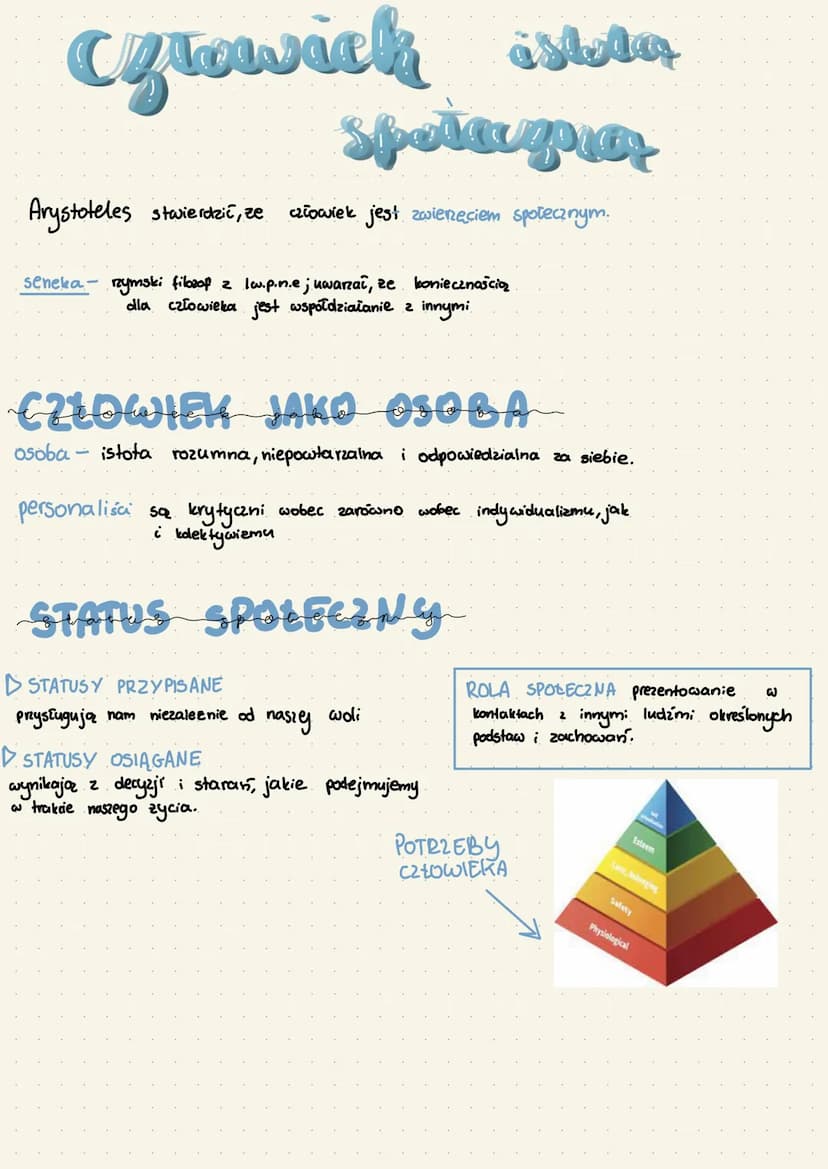 Człowiek istota
społeczna
Arystoteles stwierdził, że człowiek jest zwierzęciem społecznym.
seneka - rzymski filozof z I w.p.n.e j uważał, że koniecznością
dla człowieka jest współdziałanie z innymi
CZŁOWIEK JAKO OSOBA
człowiek jako osoba
osoba - istota rozumna, niepowtarzalna i odpowiedzialna za siebie.
personaliści są krytyczni wobec zarówno wobec indywidualizmu, jak
i kolektywizmu
STATUS SPOŁECZNY
status społeczny
STATUSY PRZYPISANE
przysługują nam niezależnie od naszej woli
STATUSY OSIĄGANE
wynikają z decyzji i starań, jakie podejmujemy
w trakcie naszego życia.
ROLA SPOŁECZNA prezentowanie w
kontaktach z innymi ludźmi określonych
podstaw i zachowań.
POTRZEBY
CZŁOWIEKA
Self
actualization
Esteem
Love, Belonging
Safety
Physiological